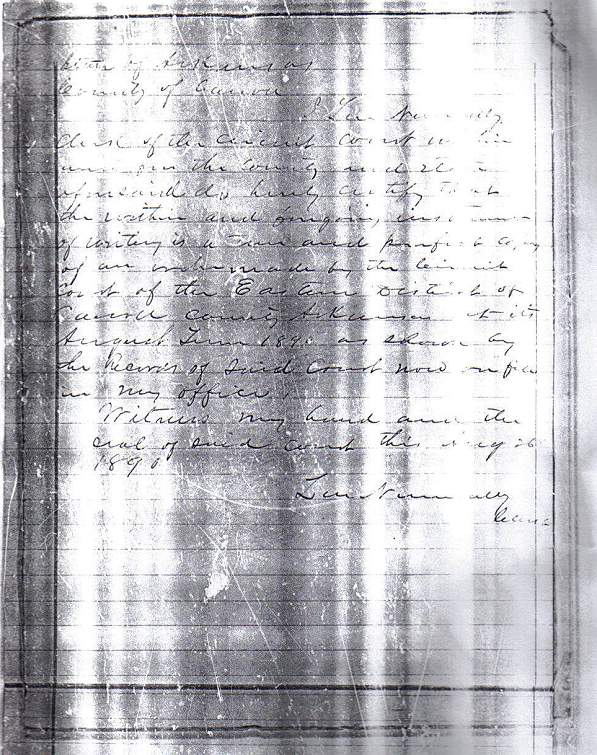 State of Arkansas
County of Carroll
I
clerk of the Circuit Court within
and for the County and State
aforesaid do hereby certify that
the within and foregoing instrument
of writing is a true and perfect copy
of an order made by the Circuit
Court of the Eastern District of
Carroll County Arkansas at its
August Term 1890 as shown by
the Records of Said Court now on file
in my office.
Witness my hand and the
seal of said Court this Aug 26
1890
Clerk